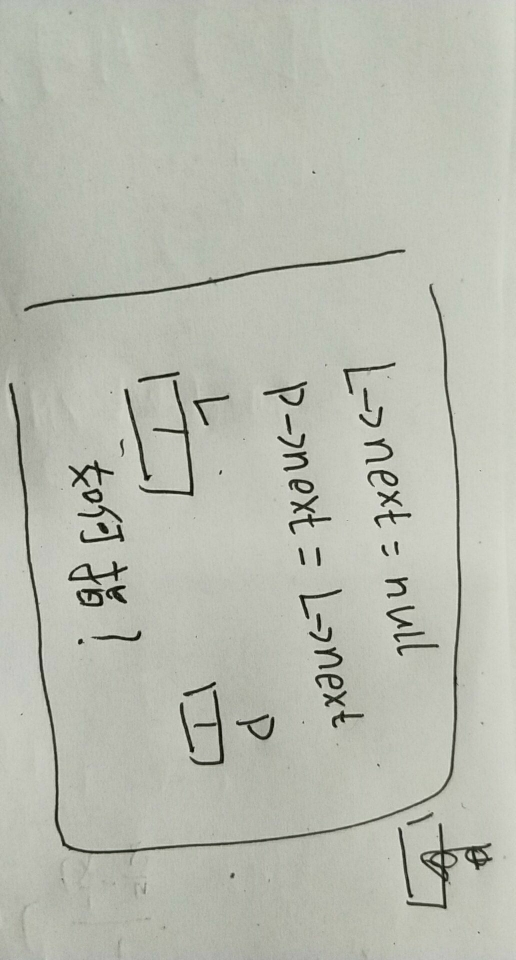 L->next = null
p->next = L->next
L
p
如何指？